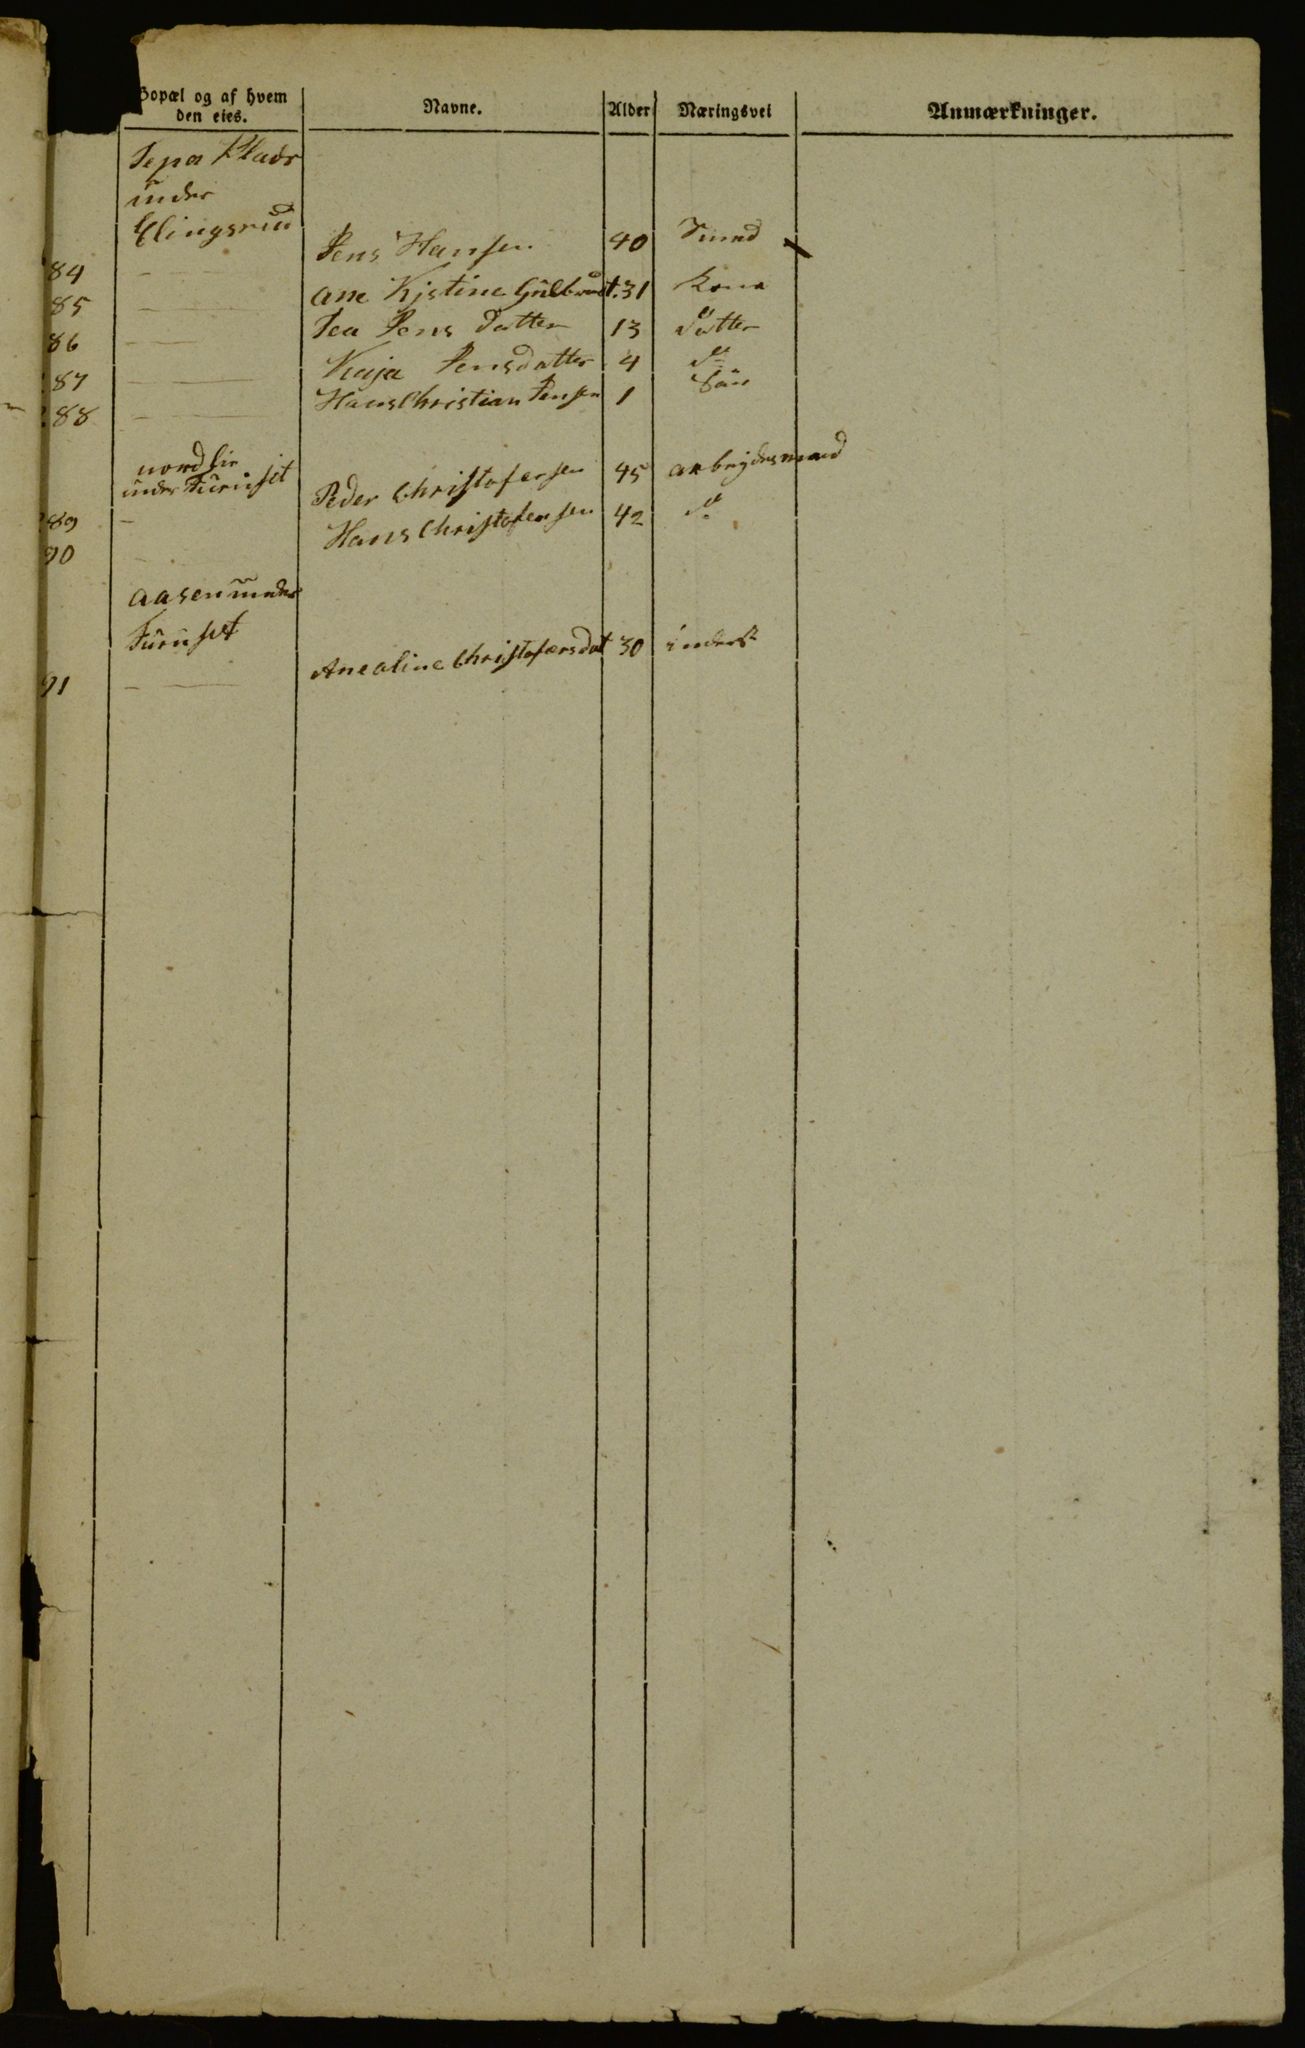 Bopæl og af hvem den eies. Navne. Alder Næringsvei Anmærkninger.
Sepa Plads
under
Elingsrud
84 Jens Hansen 40 Smed
85 ane Kjstine Gulbrandt. 31 kone
86 Tea Jens Datter 13 Datter
87 Kaja Jensdatter 4 do
88 Hans Christian Jensen 1 Sön
nordlie
under Furuset
89 Peder Christofersen 45 arbeydsmand
90 Hans Christofersen 42 do
aasen under
Furuset
91 Ane oline Christofersdat 30 inderst